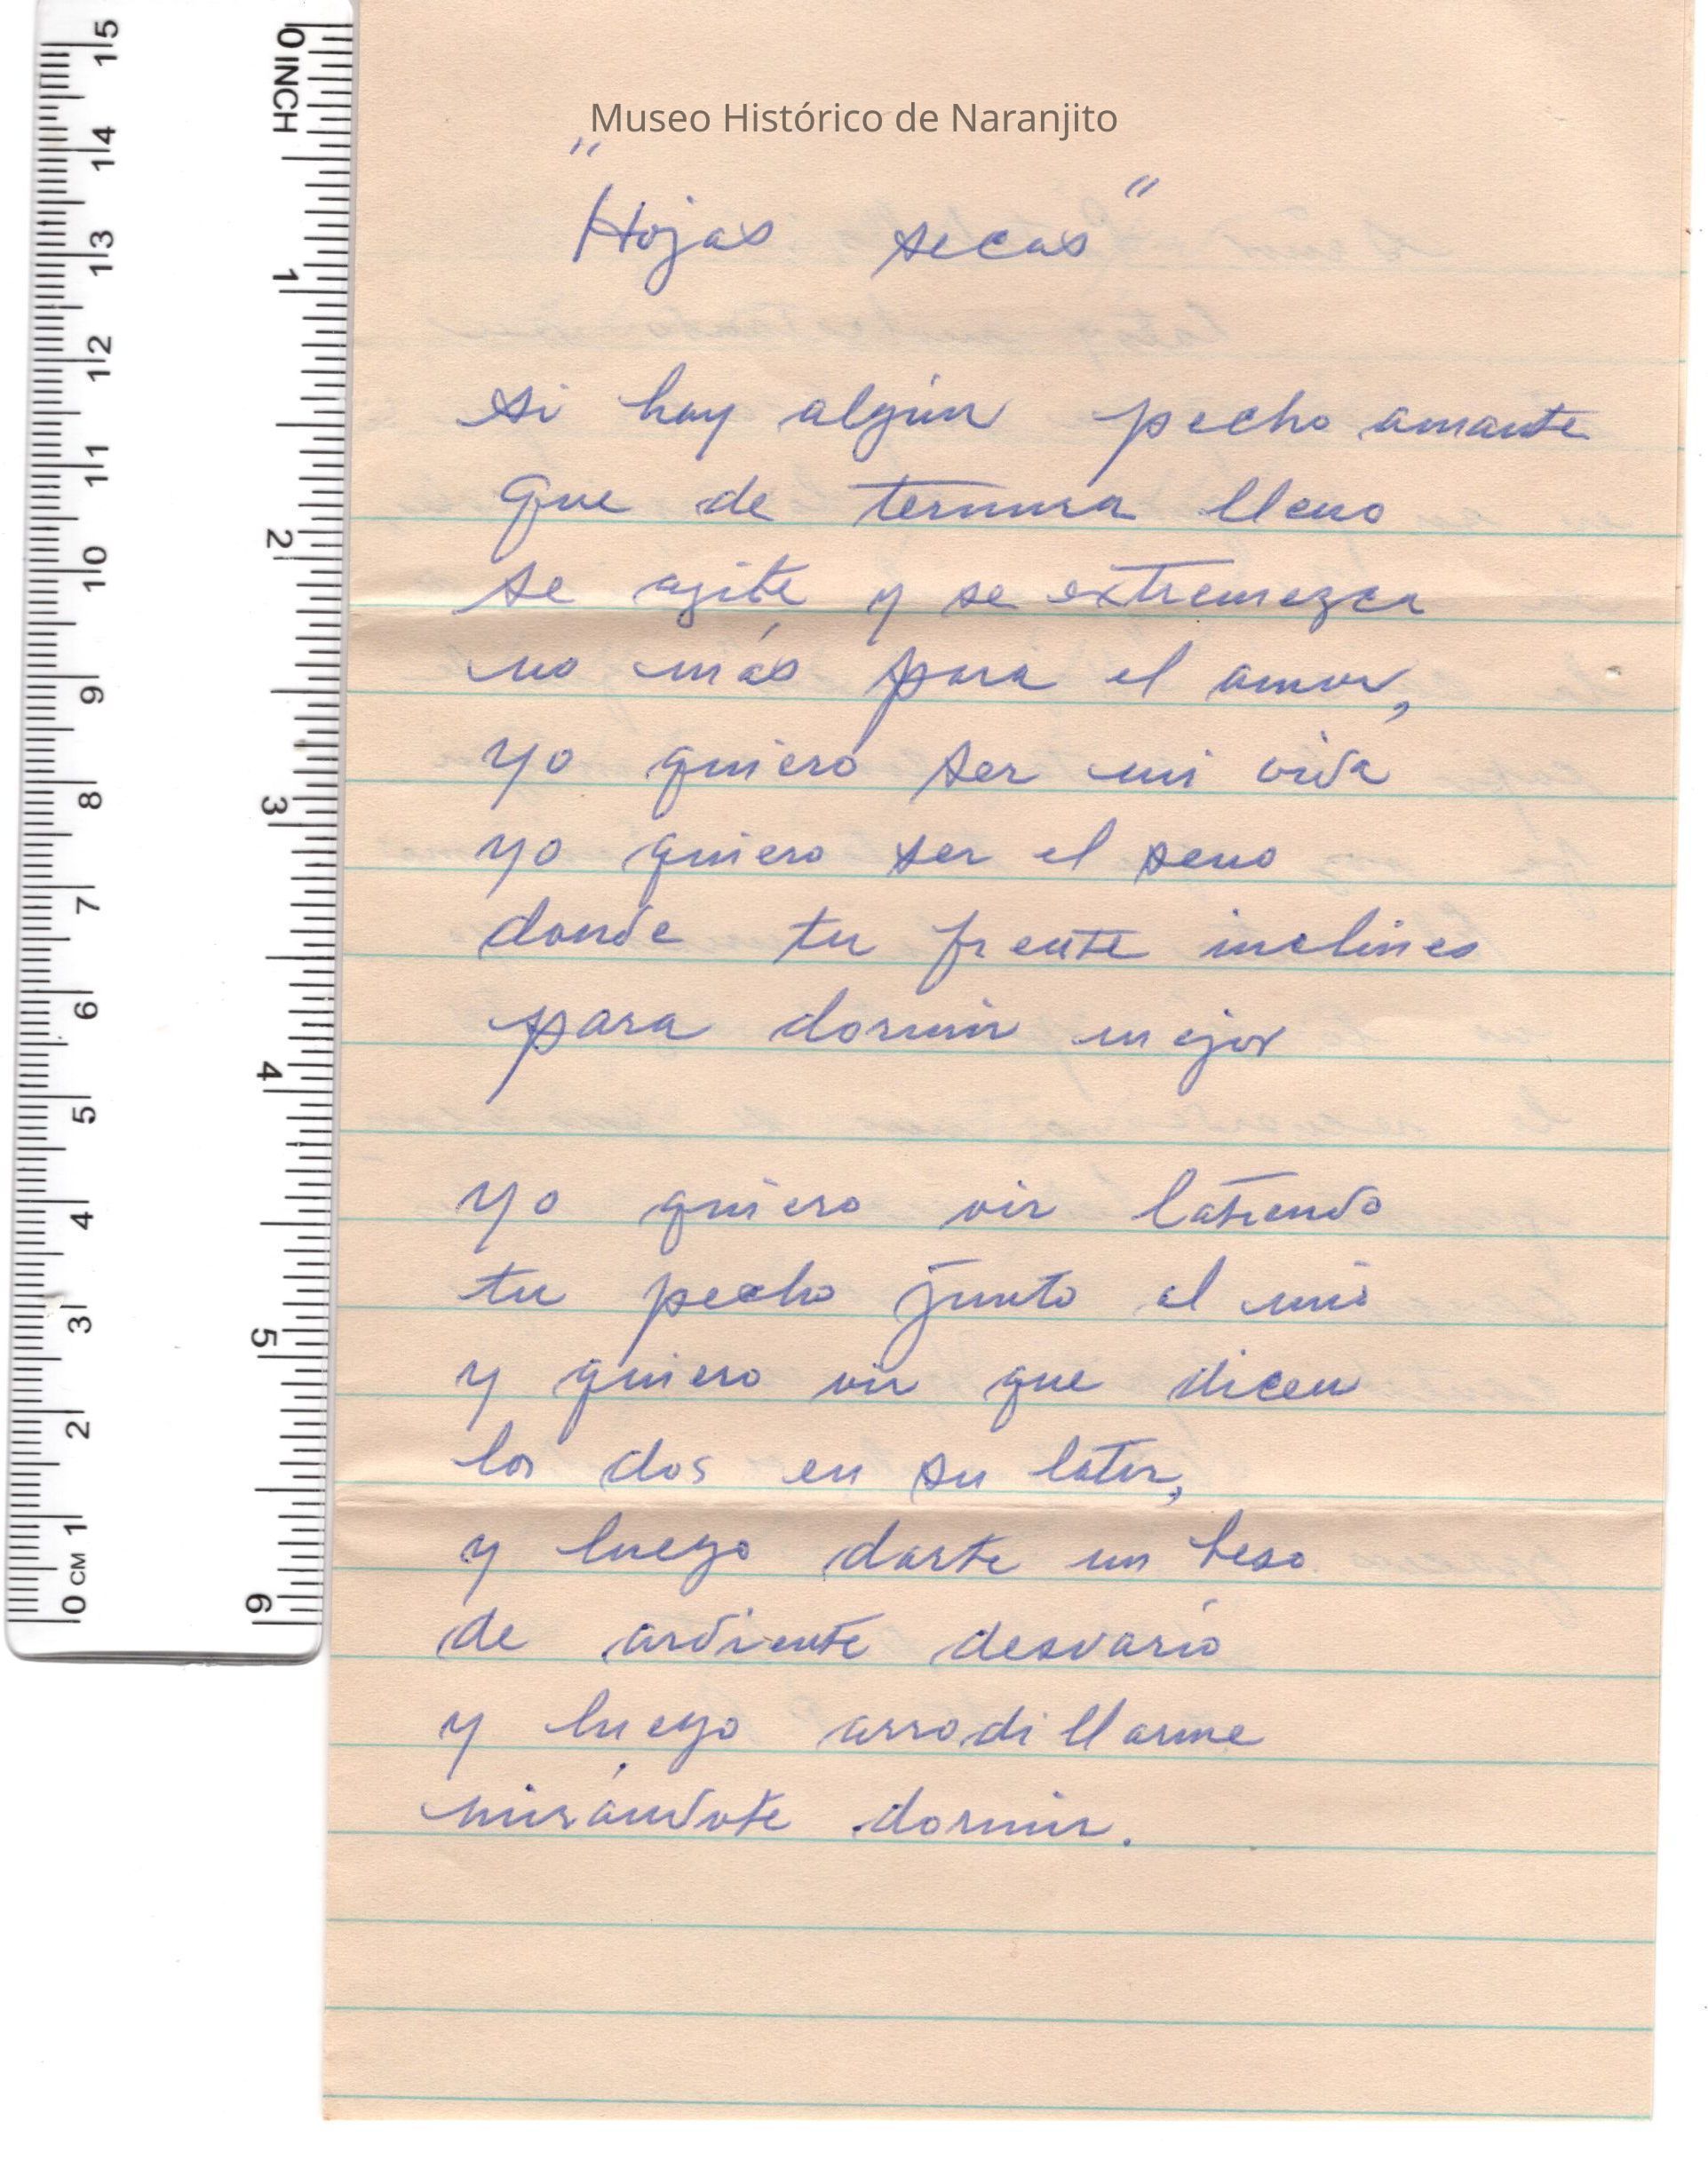 Museo Histórico de Naranjito
"Hojas secas"
si hay algún pecho amante
que de ternura lleno
se agite y se extremezca
no más para el amor,
yo quiero ser mi vida
yo quiero ser el seno
donde tu frente inclines
para dormir mejor
yo quiero oir latiendo
tu pecho junto al mio
y quiero oir que dicen
los dos en su latir,
y luego darte un beso
de ardiente desvarío
y luego arrodillarme
mirándote dormir.
0 INCH
1
2
3
4
5
6
15
14
13
12
11
10
9
8
7
6
5
4
3
2
1
0 CM